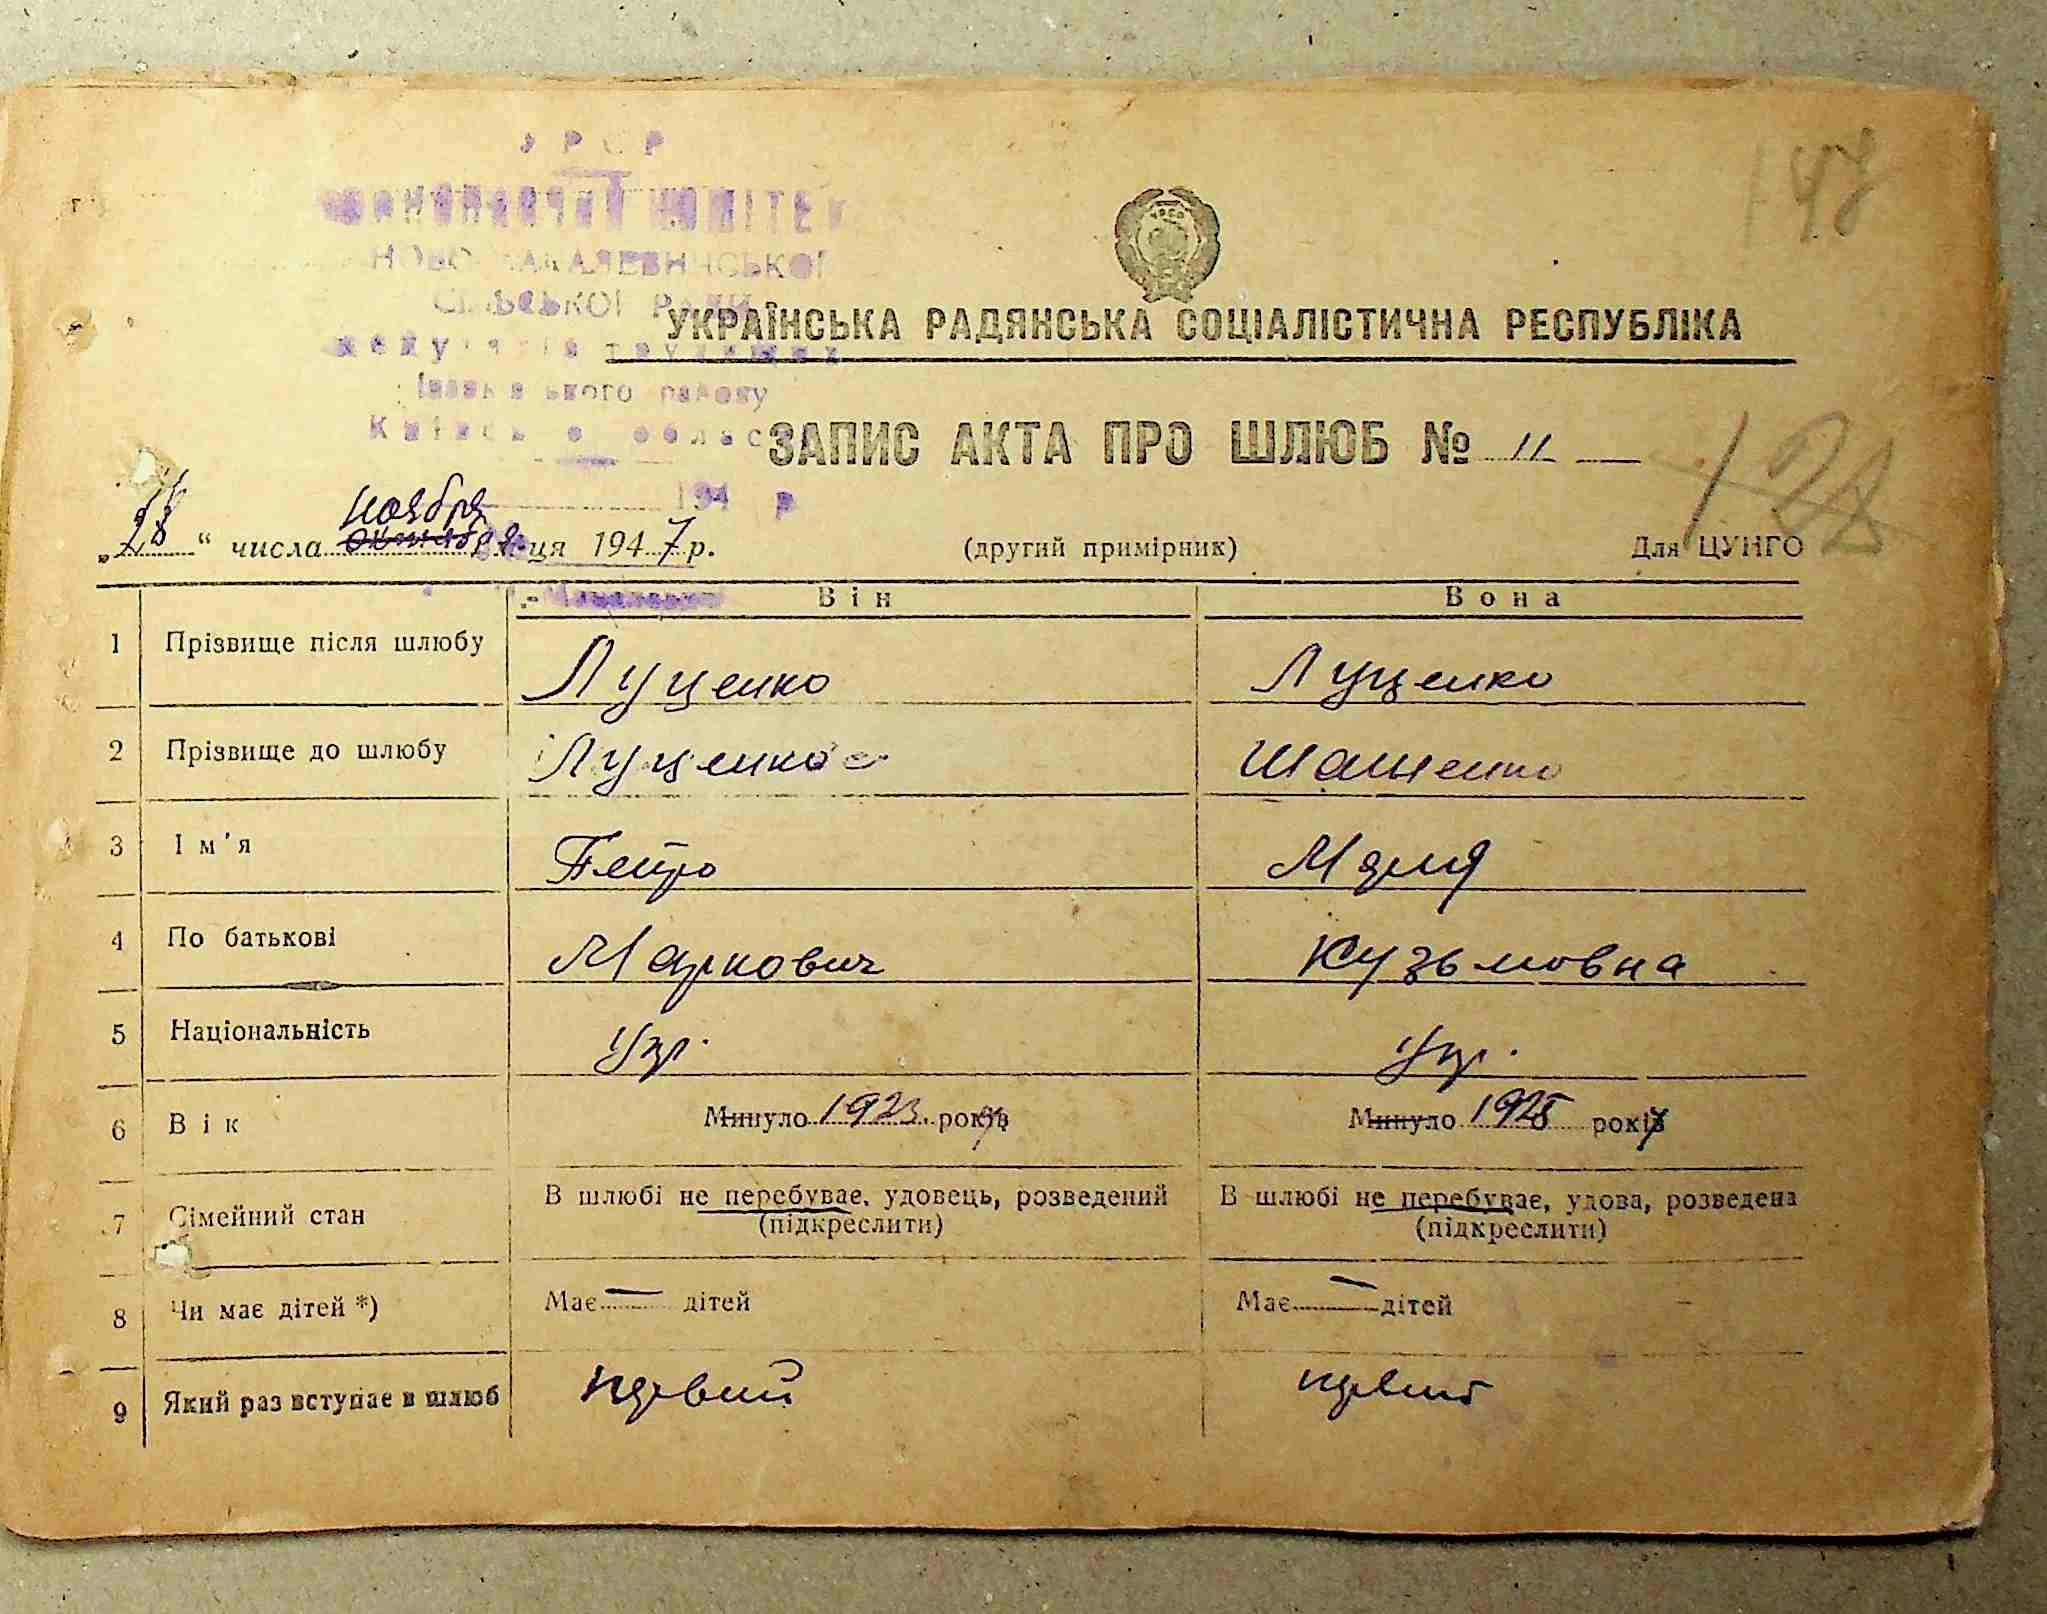 УРСР
ВИКОНАВЧИЙ КОМІТЕТ
СІЛЬСЬКОЇ РАДИ
депутатів трудящих
Іванківського району
148
УРСР
УКРАЇНСЬКА РАДЯНСЬКА СОЦІАЛІСТИЧНА РЕСПУБЛІКА
ЗАПИС АКТА ПРО ШЛЮБ № 11
128
194 р
„28“ числа октября ноября ця 1947 р. (другий примірник) Для ЦУНГО
Він Вона
1 Прізвище після шлюбу Луценко Луценко
2 Прізвище до шлюбу Луценко
3 Ім'я Петро Мария
4 По батькові Маркович Кузьмовна
5 Національність Укр. Укр.
6 Вік Минуло 1923 років Минуло 1925 років
7 Сімейний стан В шлюбі не перебуває, удовець, розведений В шлюбі не перебуває, удова, розведена
(підкреслити) (підкреслити)
8 Чи має дітей *) Має — дітей Має — дітей
9 Який раз вступає в шлюб первий первий